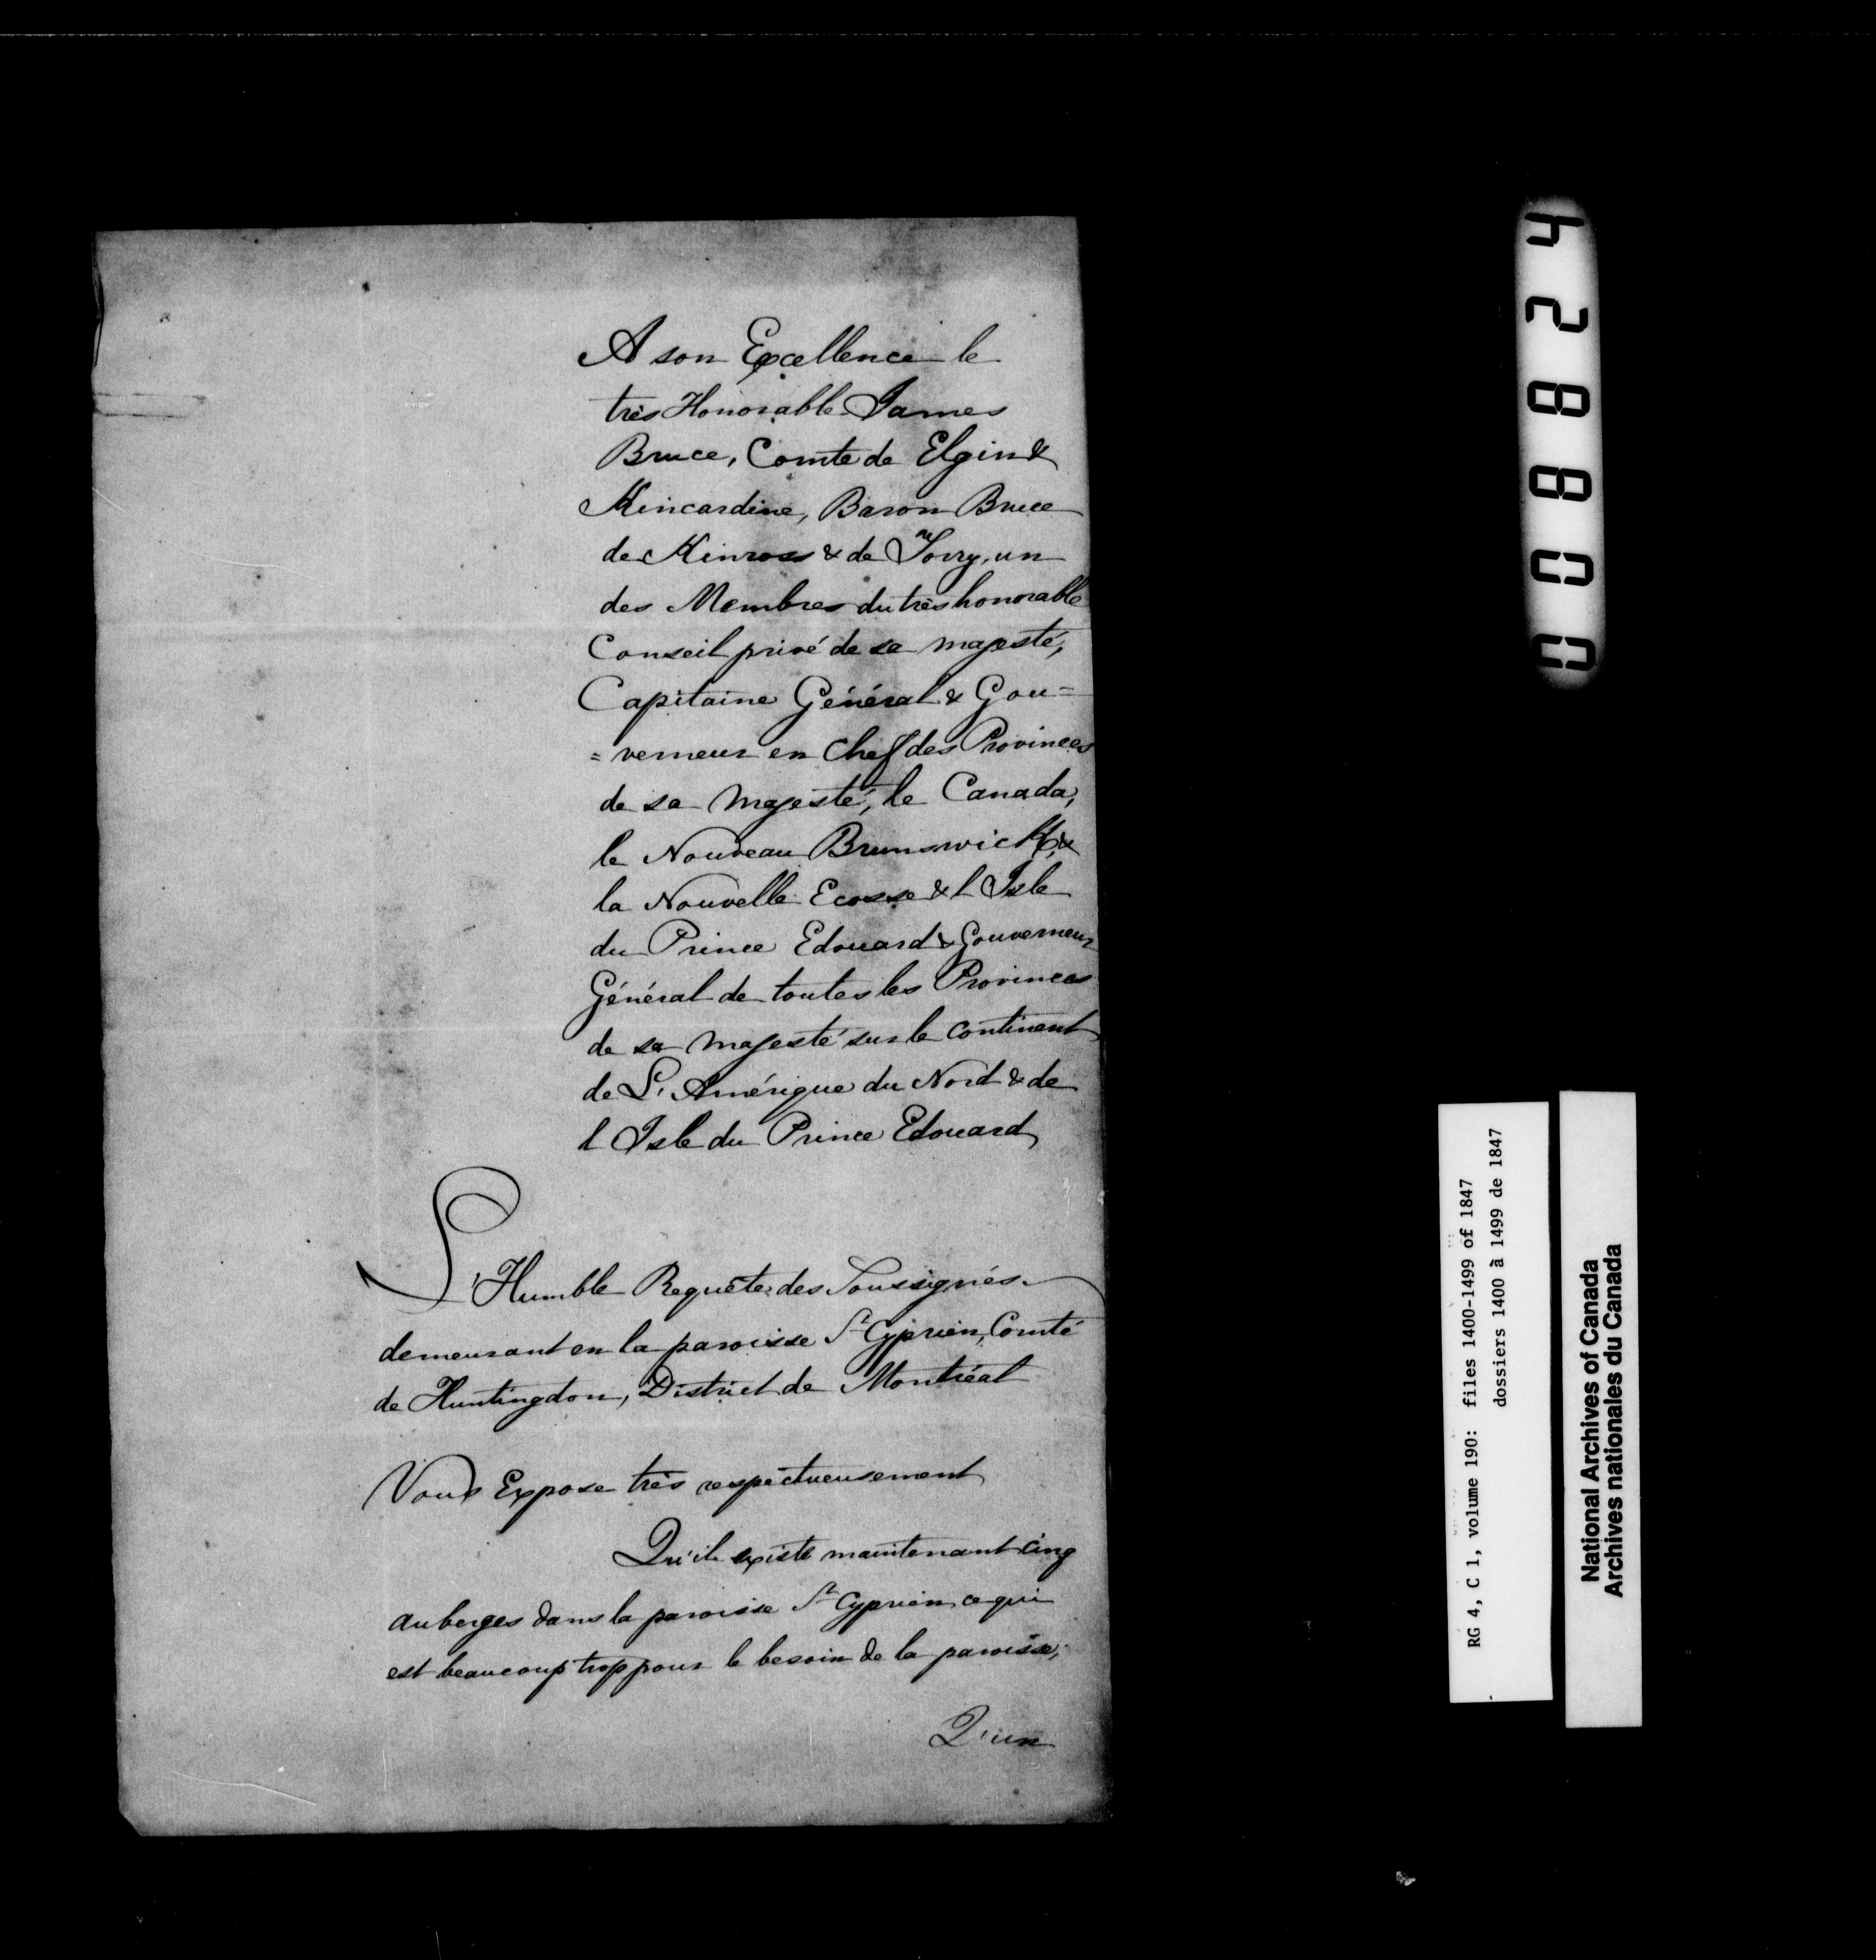 A son Excellence le
très Honorable James
Bruce, Comte de Elgin &
Kincardine, Baron Bruce
de Kinross & de Torry, un
des Membres du très honorable
Conseil privé de sa majesté,
Capitaine Général & Gou=
=verneur en Chef des Provinces
de sa Majesté, le Canada,
le Nouveau Brunswick, &
la Nouvelle Ecosse & l Isle
du Prince Edouard & Gouverneur
Général de toutes les Provinces
de sa Majesté sur le Continent
de L'Amérique du Nord & de
l Isle du Prince Edouard
L'Humble Requête des Soussignés
demeurant en la paroisse St Cyprien, Comté
de Huntingdon, District de Montréal
Vous Expose très respectueusement
Qu'il existe maintenant cinq
auberges dans la paroisse St Cyprien ce qui
est beaucoup trop pour le besoin de la paroisse;
Q'un
008824
RG 4, C 1, volume 190: files 1400-1499 of 1847
dossiers 1400 à 1499 de 1847
National Archives of Canada
Archives nationales du Canada